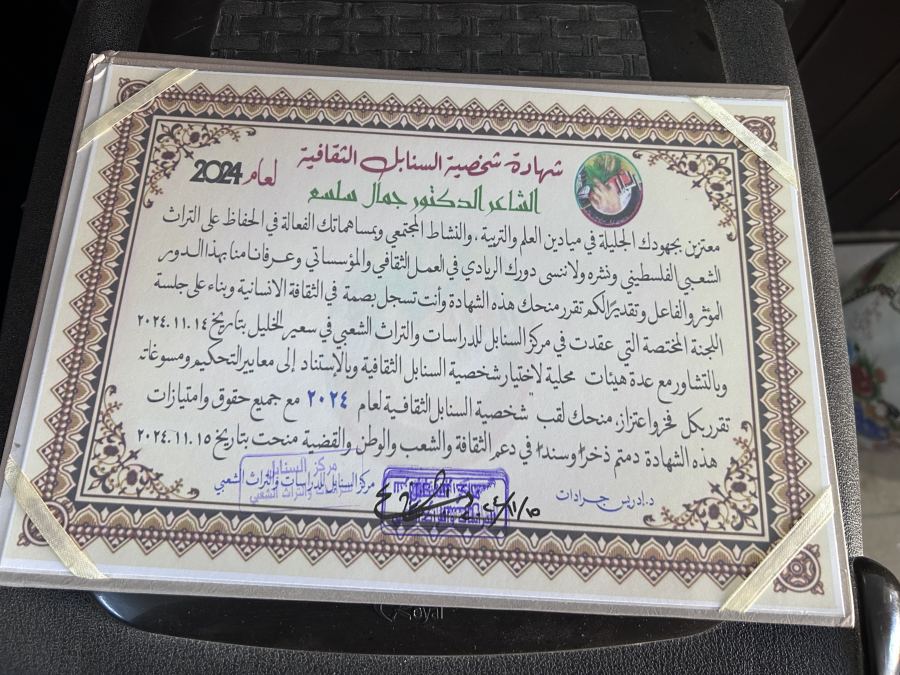 شهادة شخصية السنابل الثقافية لعام 2024
الشاعر الدكتور جمال سلسع
معتزين بجهودك الجليلة في ميادين العلم والتربية ، والنشاط المجتمعي وبمساهماتك الفعالة في الحفاظ على التراث
الشعبي الفلسطيني ونشره ولاننسى دورك الريادي في العمل الثقافي والمؤسساتي وعرفانا منا بهذا الدور
المؤثر والفاعل وتقديرًا لكم تقرر منحك هذه الشهادة وأنت تسجل بصمة في الثقافة الانسانية وبناء على جلسة
اللجنة المختصة التي عقدت في مركز السنابل للدراسات والتراث الشعبي في سعير الخليل بتاريخ ٢٠٢٤.١١.١٤
وبالتشاور مع عدة هيئات محلية لاختيار شخصية السنابل الثقافية وبالإستناد إلى معايير التحكيم ومسوغاته
تقرر بكل فخر واعتزاز منحك لقب شخصية السنابل الثقافية لعام ٢٠٢٤ مع جميع حقوق وامتيازات
هذه الشهادة دمتم ذخرًا وسندًا في دعم الثقافة والشعب والوطن والقضية منحت بتاريخ ٢٠٢٤.١١.١٥
د. إدريس جرادات
مركز السنابل للدراسات والتراث الشعبي
مركز السنابل
للدراسات والتراث الشعبي
Royal